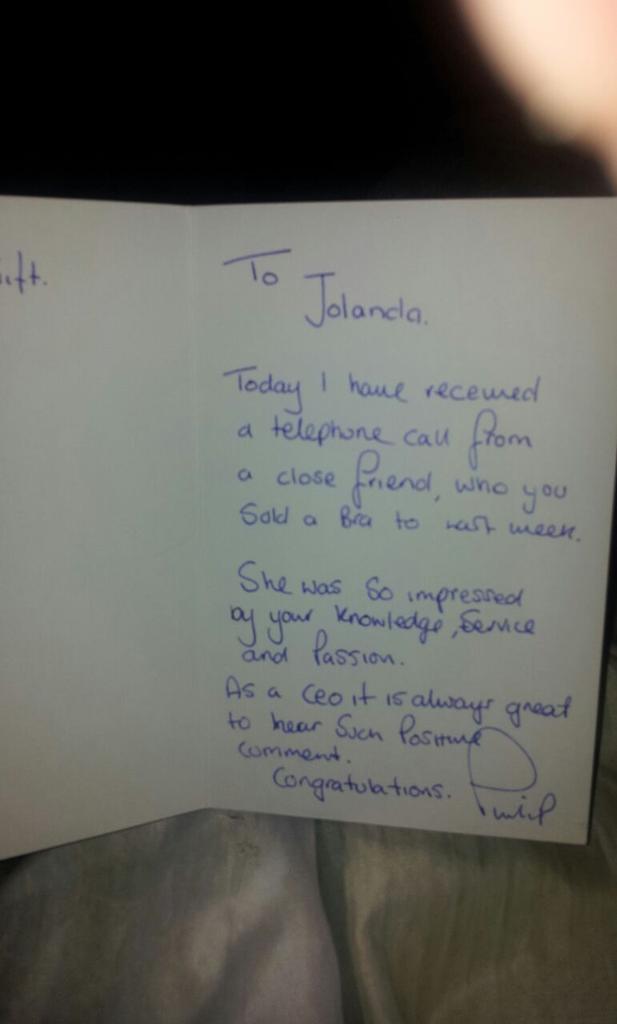 To
Jolanda.
Today I have received
a telephone call from
a close friend, who you
Sold a Bra to last week.
She was So impressed
by your knowledge, Service
and Passion.
As a CEO it is always great
to hear Such Positive
comment.
Congratulations.
Philip